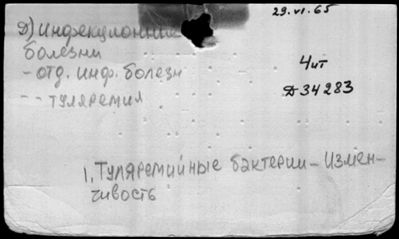 29.VI.65
Э) Инфекционные
болезни
- отд. инф. болезн
- - туляремия
Чит
Д 34283
1. Туляремийные бактерии - Измен-
чивость